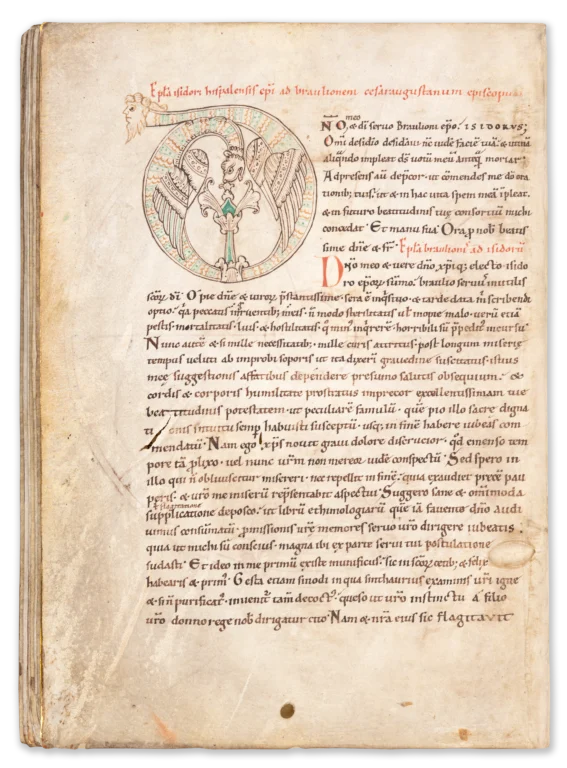 Epła isidori hispalensis epi ad braulionem cesaraugustanum episcopum
DNO meo & di servo Braulioni epo. ISIDORUS;
Omi desiderio desideravi nc vidē faciē tuā. & utinā
aliqñdo impleat ds votū meū anteq moriar.
Ad presens aū dep̄cor. ut cōmendes me dō ora
tionib; tuis. ut & in hac vita spem meā īpleat.
& in futuro beatitudinis tuę consortiū michi
concedat. Et manu sua. Ora p nob beatis
sime dñe & fr. Epła braulionis ad isidorū
Dño meo & vere dño xpiq; electo isido
ro epōꝝ sūmo. braulio servus inutilis
scōꝝ dī. O pie dñe & viroꝝ p̄stantissime. sera ē inq̄sitio. & tarde data m̄ scribendi
optio. q̄a peccatis īgruentib; meis. ñ modo sterilitatis ul inopie malo. verū etiā
pestis mortalitatis. luis. & hostilitatis. q̄ min inq̄rere. horribili sū p̄peditus incursu.
Nunc autē & si mille necessitatib; mille curis attritus. post longum miserię
tempus veluti ab improbi soporis ut ita dixerī gravedine suscitatus. istius
meę suggestionis affatibus dependere presumo salutis obsequium. &
cordis & corporis humilitate prostratus imprecor excellentissimam tuę
beatitudinis potestatem. ut peculiarē famulū. que pio illo sacre digna
tionis intuitu semp habuisti susceptū. usq; in finē habere iubeas com
mendatū. Nam ego xps novit gravi dolore discrucior. qđ emenso tem
pore tā plixo. vel nunc urm̄ non mereor vidē conspectū. Sed spero in
illo qui ñ obliviscitur misereri. nec repellit in finē. quia exaudiet precē pau
peris. & uro me miserū rep̄sentabit aspectui. Suggero sane & omimoda
supplicatione deposco. ut librū ethimologiarū que iā favente dño audi
vimus consūmatū. p̄missionis urę memores servo uro dirigere iubeatis.
quia ut michi sū conscius. magna ibi ex parte servi tui postulatione
sudasti. Et ideo in me primū existe munificus. sic in scōꝝ cetib; & felix
habearis & prim. Gesta etiam sinodi in qua sintharius examinis uri igne
& si ñ purificat. invent̄ tam decoct. queso ut uro instinctu a filio
uro donno rege nob dirigatur cito. Nam & nra eius sic flagitavit